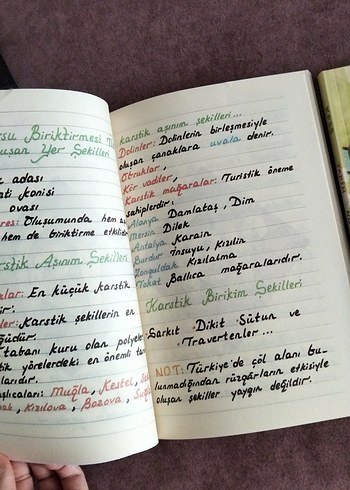 su Biriktirmesi
uşan Yer Şekilleri
adası
Konisi
ovası
Oluşumunda hem
hem de biriktirme
Karstik Aşınım Şekilleri
En küçük karstik
Karstik şekillerin en
tabanı kuru olan polye
yörelerdeki en önemli
Muğla, Kestel,
Kızılova, Bozova,
karstik aşınım şekilleri...
Dolinler: Dolinlerin birleşmesiyle
oluşan çanaklara uvala denir.
Obruklar,
Kör vadiler,
Karstik mağaralar: Turistik öneme
sahiplerdir.
Alanya Damlataş, Dim
Mersin Dilek
Antalya Karain
Burdur İnsuyu, Kızılin
Zonguldak Kızılalma
Tokat Ballıca mağaralarıdır.
Karstik Birikim Şekilleri
Sarkıt Dikit Sütun ve
Travertenler...
NOT: Türkiye'de çöl alanı bu-
lunmadığından rüzgârların etkisiyle
oluşan şekiller yaygın değildir.